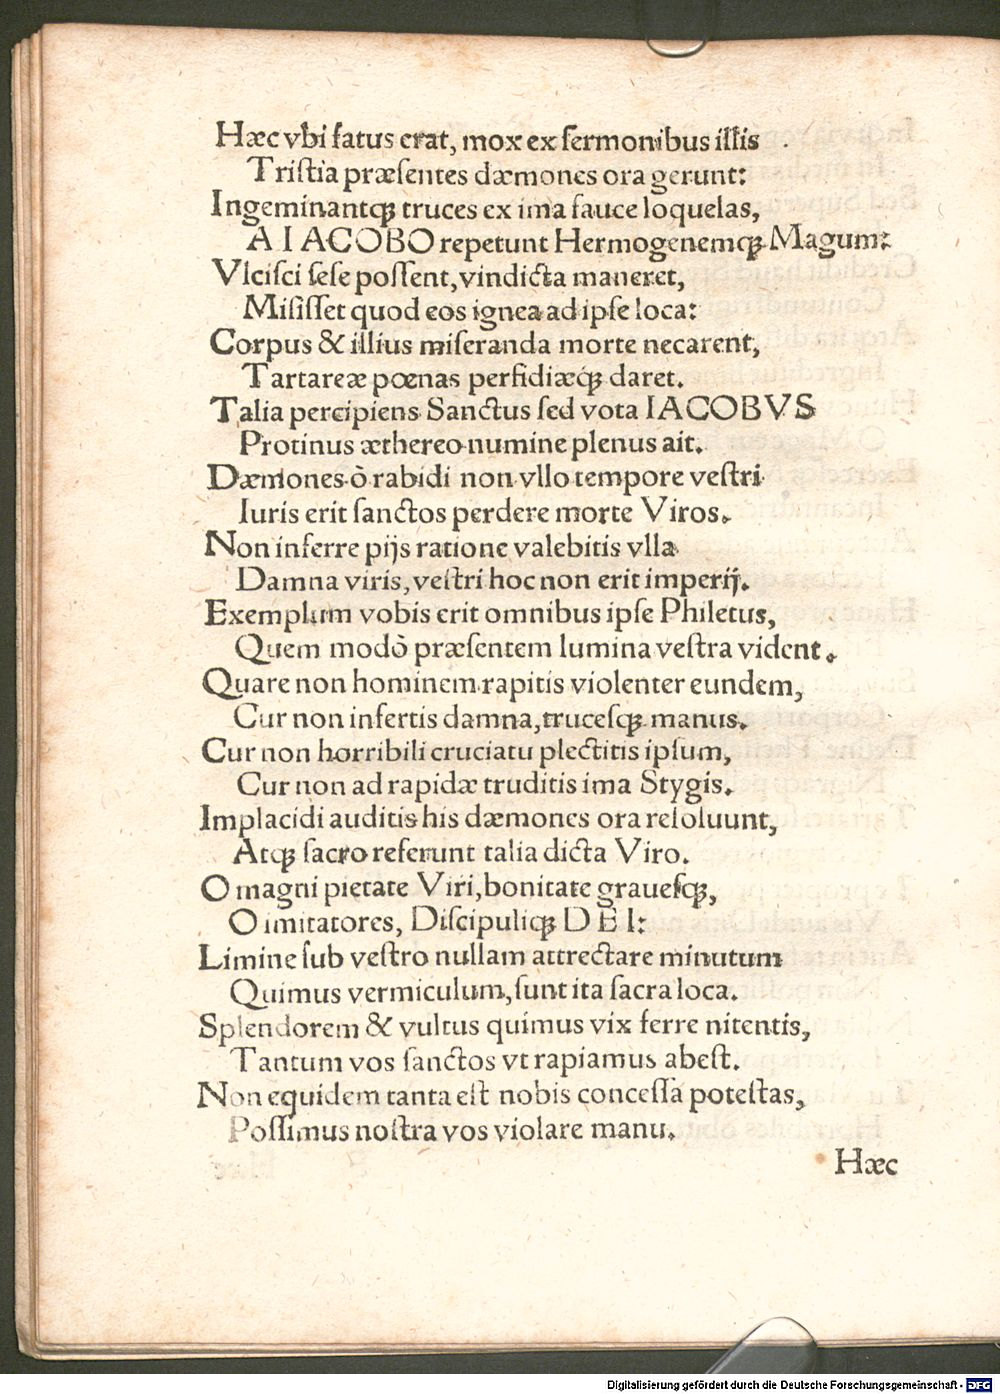 Hæc vbi fatus erat, mox ex ſermonibus illis
Triſtia præſentes dæmones ora gerunt:
Ingeminantqꝫ truces ex ima fauce loquelas,
A IACOBO repetunt Hermogenemqꝫ Magum:
Vlciſci ſeſe poſſent, vindicta maneret,
Miſiſſet quod eos ignea ad ipſe loca:
Corpus & illius miſeranda morte necarent,
Tartareæ pœnas perfidiæq́ꝫ daret.
Talia percipiens Sanctus ſed vota IACOBVS
Protinus æthereo numine plenus ait.
Dæmones ò rabidi non vllo tempore veſtri
Iuris erit ſanctos perdere morte Viros.
Non inferre pijs ratione valebitis vlla
Damna viris, veſtri hoc non erit imperij.
Exemplum vobis erit omnibus ipſe Philetus,
Quem modò præſentem lumina veſtra vident.
Quare non hominem rapitis violenter eundem,
Cur non infertis damna, truceſqꝫ manus.
Cur non horribili cruciatu plectitis ipſum,
Cur non ad rapidæ truditis ima Stygis.
Implacidi auditis his dæmones ora reſoluunt,
Atqꝫ ſacro referunt talia dicta Viro.
O magni pietate Viri, bonitate graueſqꝫ,
O imitatores, Diſcipuliqꝫ DEI:
Limine ſub veſtro nullam attrectare minutum
Quimus vermiculum, ſunt ita ſacra loca.
Splendorem & vultus quimus vix ferre nitentis,
Tantum vos ſanctos vt rapiamus abeſt.
Non equidem tanta eſt nobis conceſſa poteſtas,
Poſſimus noſtra vos violare manu.
Hæc
Digitalisierung gefördert durch die Deutsche Forschungsgemeinschaft - DFG